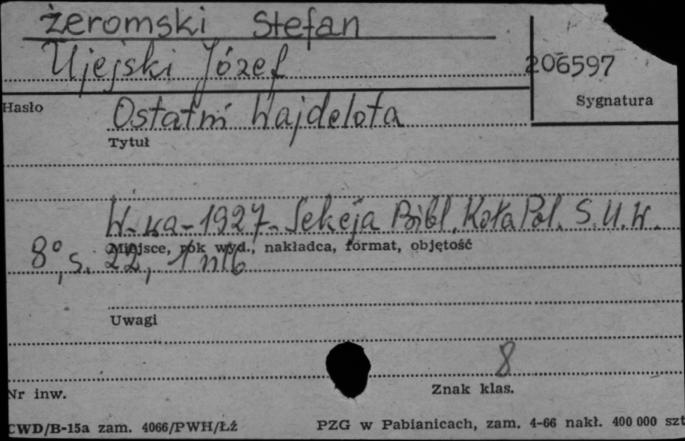 Żeromski Stefan
Ujejski Józef
206597
Hasło
Sygnatura
Ostatni Wajdelota
Tytuł
W-wa-1927-Sekcja Bibl. Koła Pol. S.U.W.
Miejsce, rok wyd., nakładca, format, objętość
8°, s. 22, 1 nlb
Uwagi
8
Nr inw.
Znak klas.
CWD/B-15a zam. 4066/PWH/Łż
PZG w Pabianicach, zam. 4-66 nakł. 400 000 szt